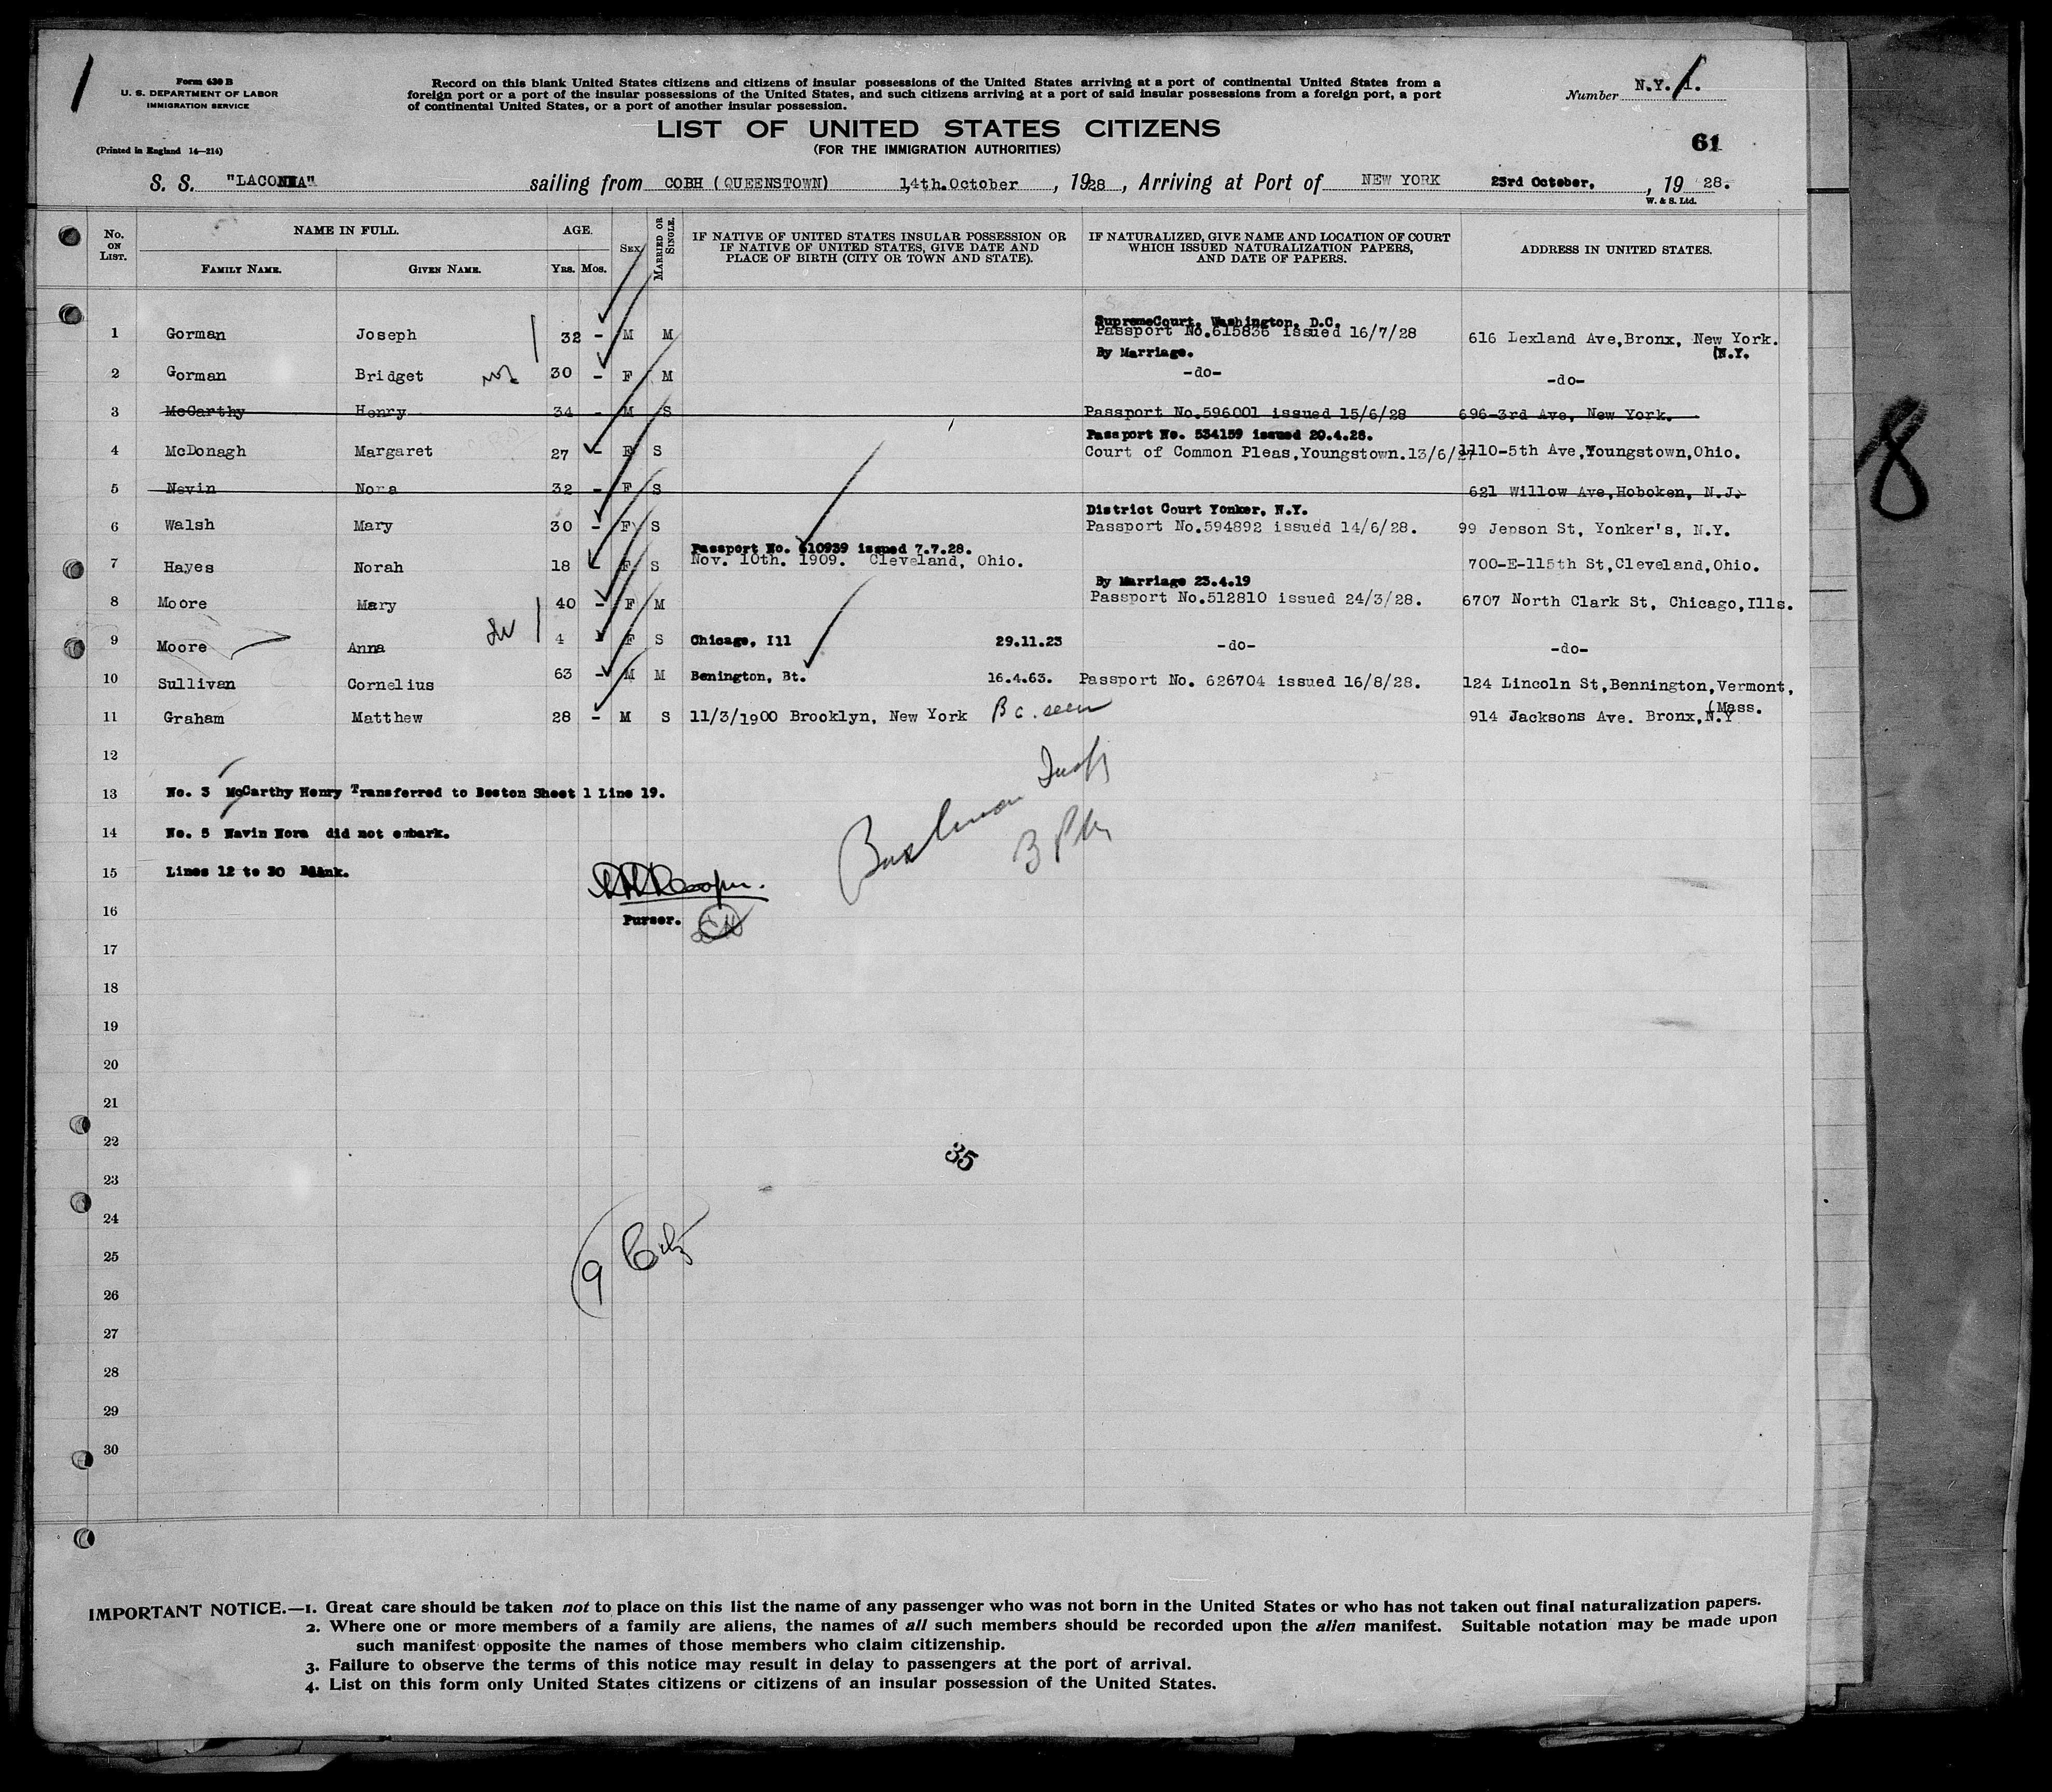 Form 630 B
U. S. DEPARTMENT OF LABOR
IMMIGRATION SERVICE
(Printed in England 14—214)
Record on this blank United States citizens and citizens of insular possessions of the United States arriving at a port of continental United States from a
foreign port or a port of the insular possessions of the United States, and such citizens arriving at a port of said insular possessions from a foreign port, a port
of continental United States, or a port of another insular possession.
Number N.Y. 1.
LIST OF UNITED STATES CITIZENS
(FOR THE IMMIGRATION AUTHORITIES)
61
S. S. "LACONIA" sailing from COBH (QUEENSTOWN) 14th.October , 1928 , Arriving at Port of NEW YORK 23rd October, , 19 28.
W. & S. Ltd.
No. ON LIST. NAME IN FULL. FAMILY NAME. GIVEN NAME. AGE. YRS. MOS. SEX MARRIED OR SINGLE. IF NATIVE OF UNITED STATES INSULAR POSSESSION OR IF NATIVE OF UNITED STATES, GIVE DATE AND PLACE OF BIRTH (CITY OR TOWN AND STATE). IF NATURALIZED, GIVE NAME AND LOCATION OF COURT WHICH ISSUED NATURALIZATION PAPERS, AND DATE OF PAPERS. ADDRESS IN UNITED STATES.
SupremeCourt, Washington, D.C.
1 Gorman Joseph 32 - M M Passport No.615836 issued 16/7/28 616 Lexland Ave,Bronx, New York.
By Marriage. (N.Y.
2 Gorman Bridget 30 - F M -do- -do-
3 McCarthy Henry 34 - M S Passport No.596001 issued 15/6/28 696-3rd Ave, New York.
Passport No. 534159 issued 20.4.28.
4 McDonagh Margaret 27 - F S Court of Common Pleas,Youngstown.13/6/27 1110-5th Ave,Youngstown,Ohio.
5 Nevin Nora 32 - F S 621 Willow Ave,Hoboken, N.J.
District Court Yonker, N.Y.
6 Walsh Mary 30 - F S Passport No.594892 issued 14/6/28. 99 Jepson St, Yonker's, N.Y.
Passport No. 610939 issued 7.7.28.
7 Hayes Norah 18 - F S Nov. 10th. 1909. Cleveland, Ohio. 700-E-115th St,Cleveland,Ohio.
By Marriage 23.4.19
8 Moore Mary 40 - F M Passport No.512810 issued 24/3/28. 6707 North Clark St, Chicago,Ills.
9 Moore Anna 4 F S Chicago, Ill 29.11.23 -do- -do-
10 Sullivan Cornelius 63 - M M Benington, Bt. 16.4.63. Passport No. 626704 issued 16/8/28. 124 Lincoln St,Bennington,Vermont,
(Mass.
11 Graham Matthew 28 - M S 11/3/1900 Brooklyn, New York B c. seen 914 Jacksons Ave. Bronx,N.Y
12
13 No. 3 McCarthy Henry Transferred to Boston Sheet 1 Line 19.
14 No. 5 Navin Nora did not embark.
15 Lines 12 to 30 Blank.
16 Purser.
17
18
19
20
21
22
35
23
24
25
9 Citz
26
27
28
29
30
8
IMPORTANT NOTICE.—1. Great care should be taken not to place on this list the name of any passenger who was not born in the United States or who has not taken out final naturalization papers.
2. Where one or more members of a family are aliens, the names of all such members should be recorded upon the alien manifest. Suitable notation may be made upon
such manifest opposite the names of those members who claim citizenship.
3. Failure to observe the terms of this notice may result in delay to passengers at the port of arrival.
4. List on this form only United States citizens or citizens of an insular possession of the United States.